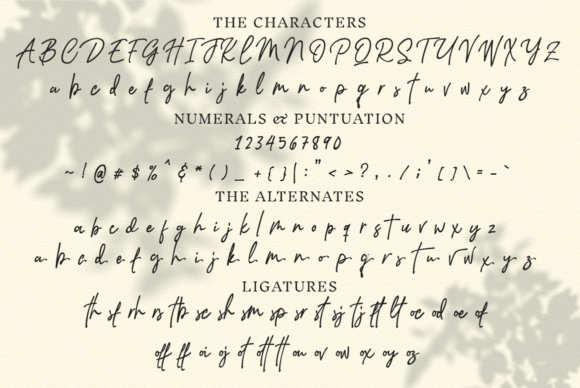 THE CHARACTERS
A B C D E F G H I J K L M N O P Q R S T U V W X Y Z
a b c d e f g h i j k l m n o p q r s t u v w x y z
NUMERALS & PUNTUATION
1 2 3 4 5 6 7 8 9 0
~ ! @ # $ % ^ & * ( ) _ + { } | : " < > ? , . / ; ' [ ] \ = - `
THE ALTERNATES
a b c d e f g h i j k l m n o p q r s t u v w x y z
a b c d e f g h i j k l m n o p q r s t u v w x y z
LIGATURES
th sf rh rs tb sc sh sm sp sr st sj tj ft lt oc od oe of
off ff oi oj ot ott tt ou ov ow ox oy oz